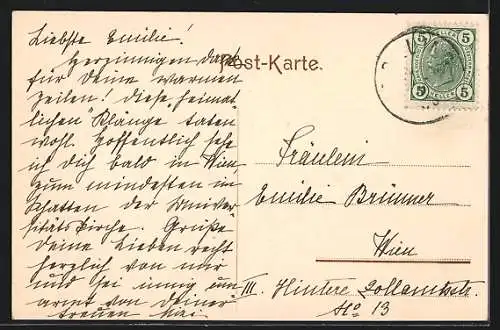 Liebste Emilie!
Herzinnigen Dank
für Deine warmen
Zeilen! Diese heimat-
lichen Klänge taten
wohl. Hoffentlich sehe
ich Dich bald in Wien,
zum mindesten im
Schatten der Univer-
sitätskirche. Grüße
Deine Lieben recht
herzlich von mir
und sei innig um-
armt von Deiner
treuen
Post-Karte.
5 5
5 HELLER 5
Fräulein
Emilie Brünner
Wien
III. Hintere Zollamtsstr.
No 13